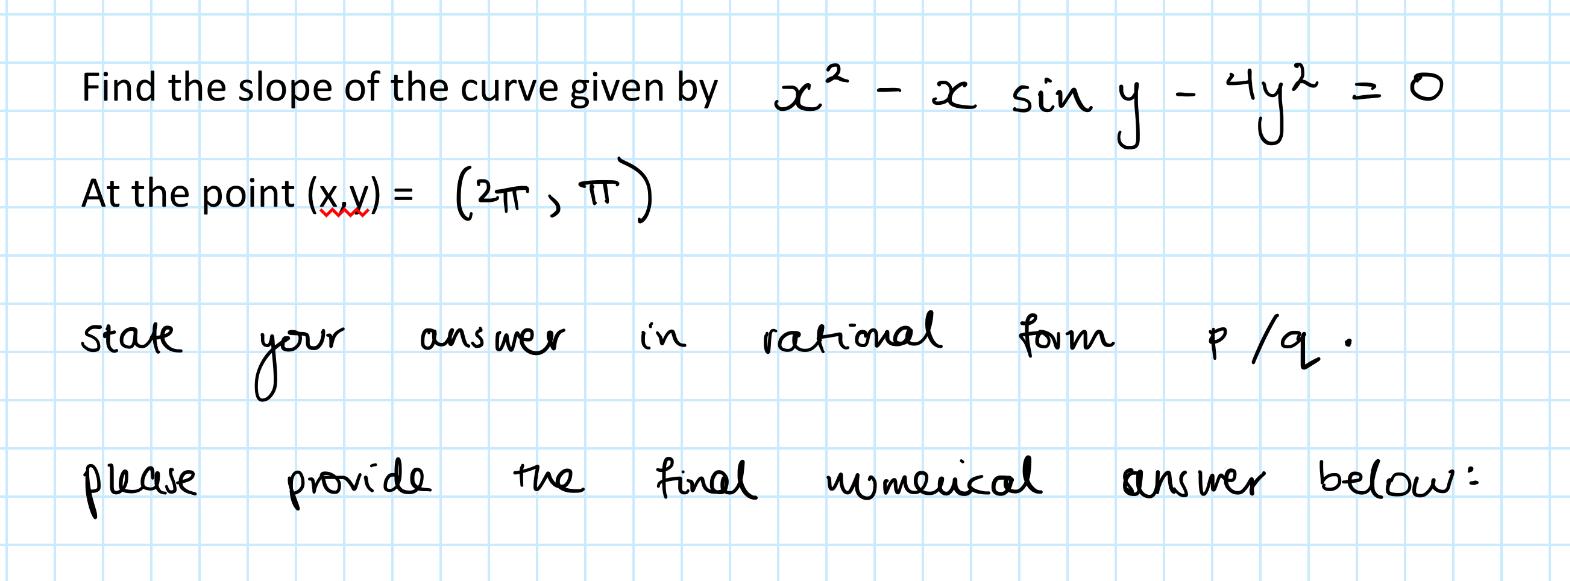 Find the slope of the curve given by x² - x sin y - 4y² = 0
At the point (x,y) = (2π, π)
state your answer in rational form p/q.
please provide the final numerical answer below: